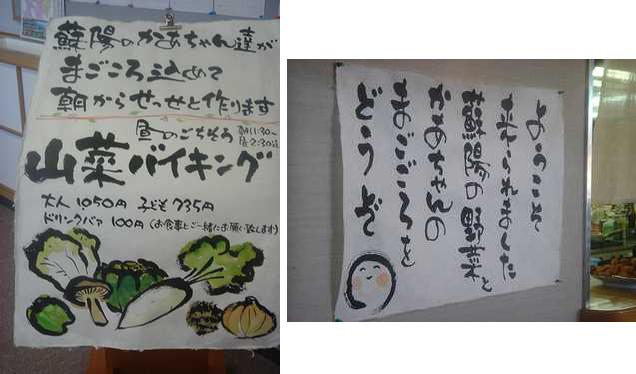 蘇陽のかあちゃん達が
まごころ込めて
朝からせっせと作ります
昼のごちそう
朝11:30〜
昼2:30迄
山菜バイキング
大人1,050円 子ども735円
ドリンクバァ 100円 (お食事とご一緒にお願い致します)
ようこそ
来られました
蘇陽の野菜と
かあちゃんの
まごころを
どうぞ